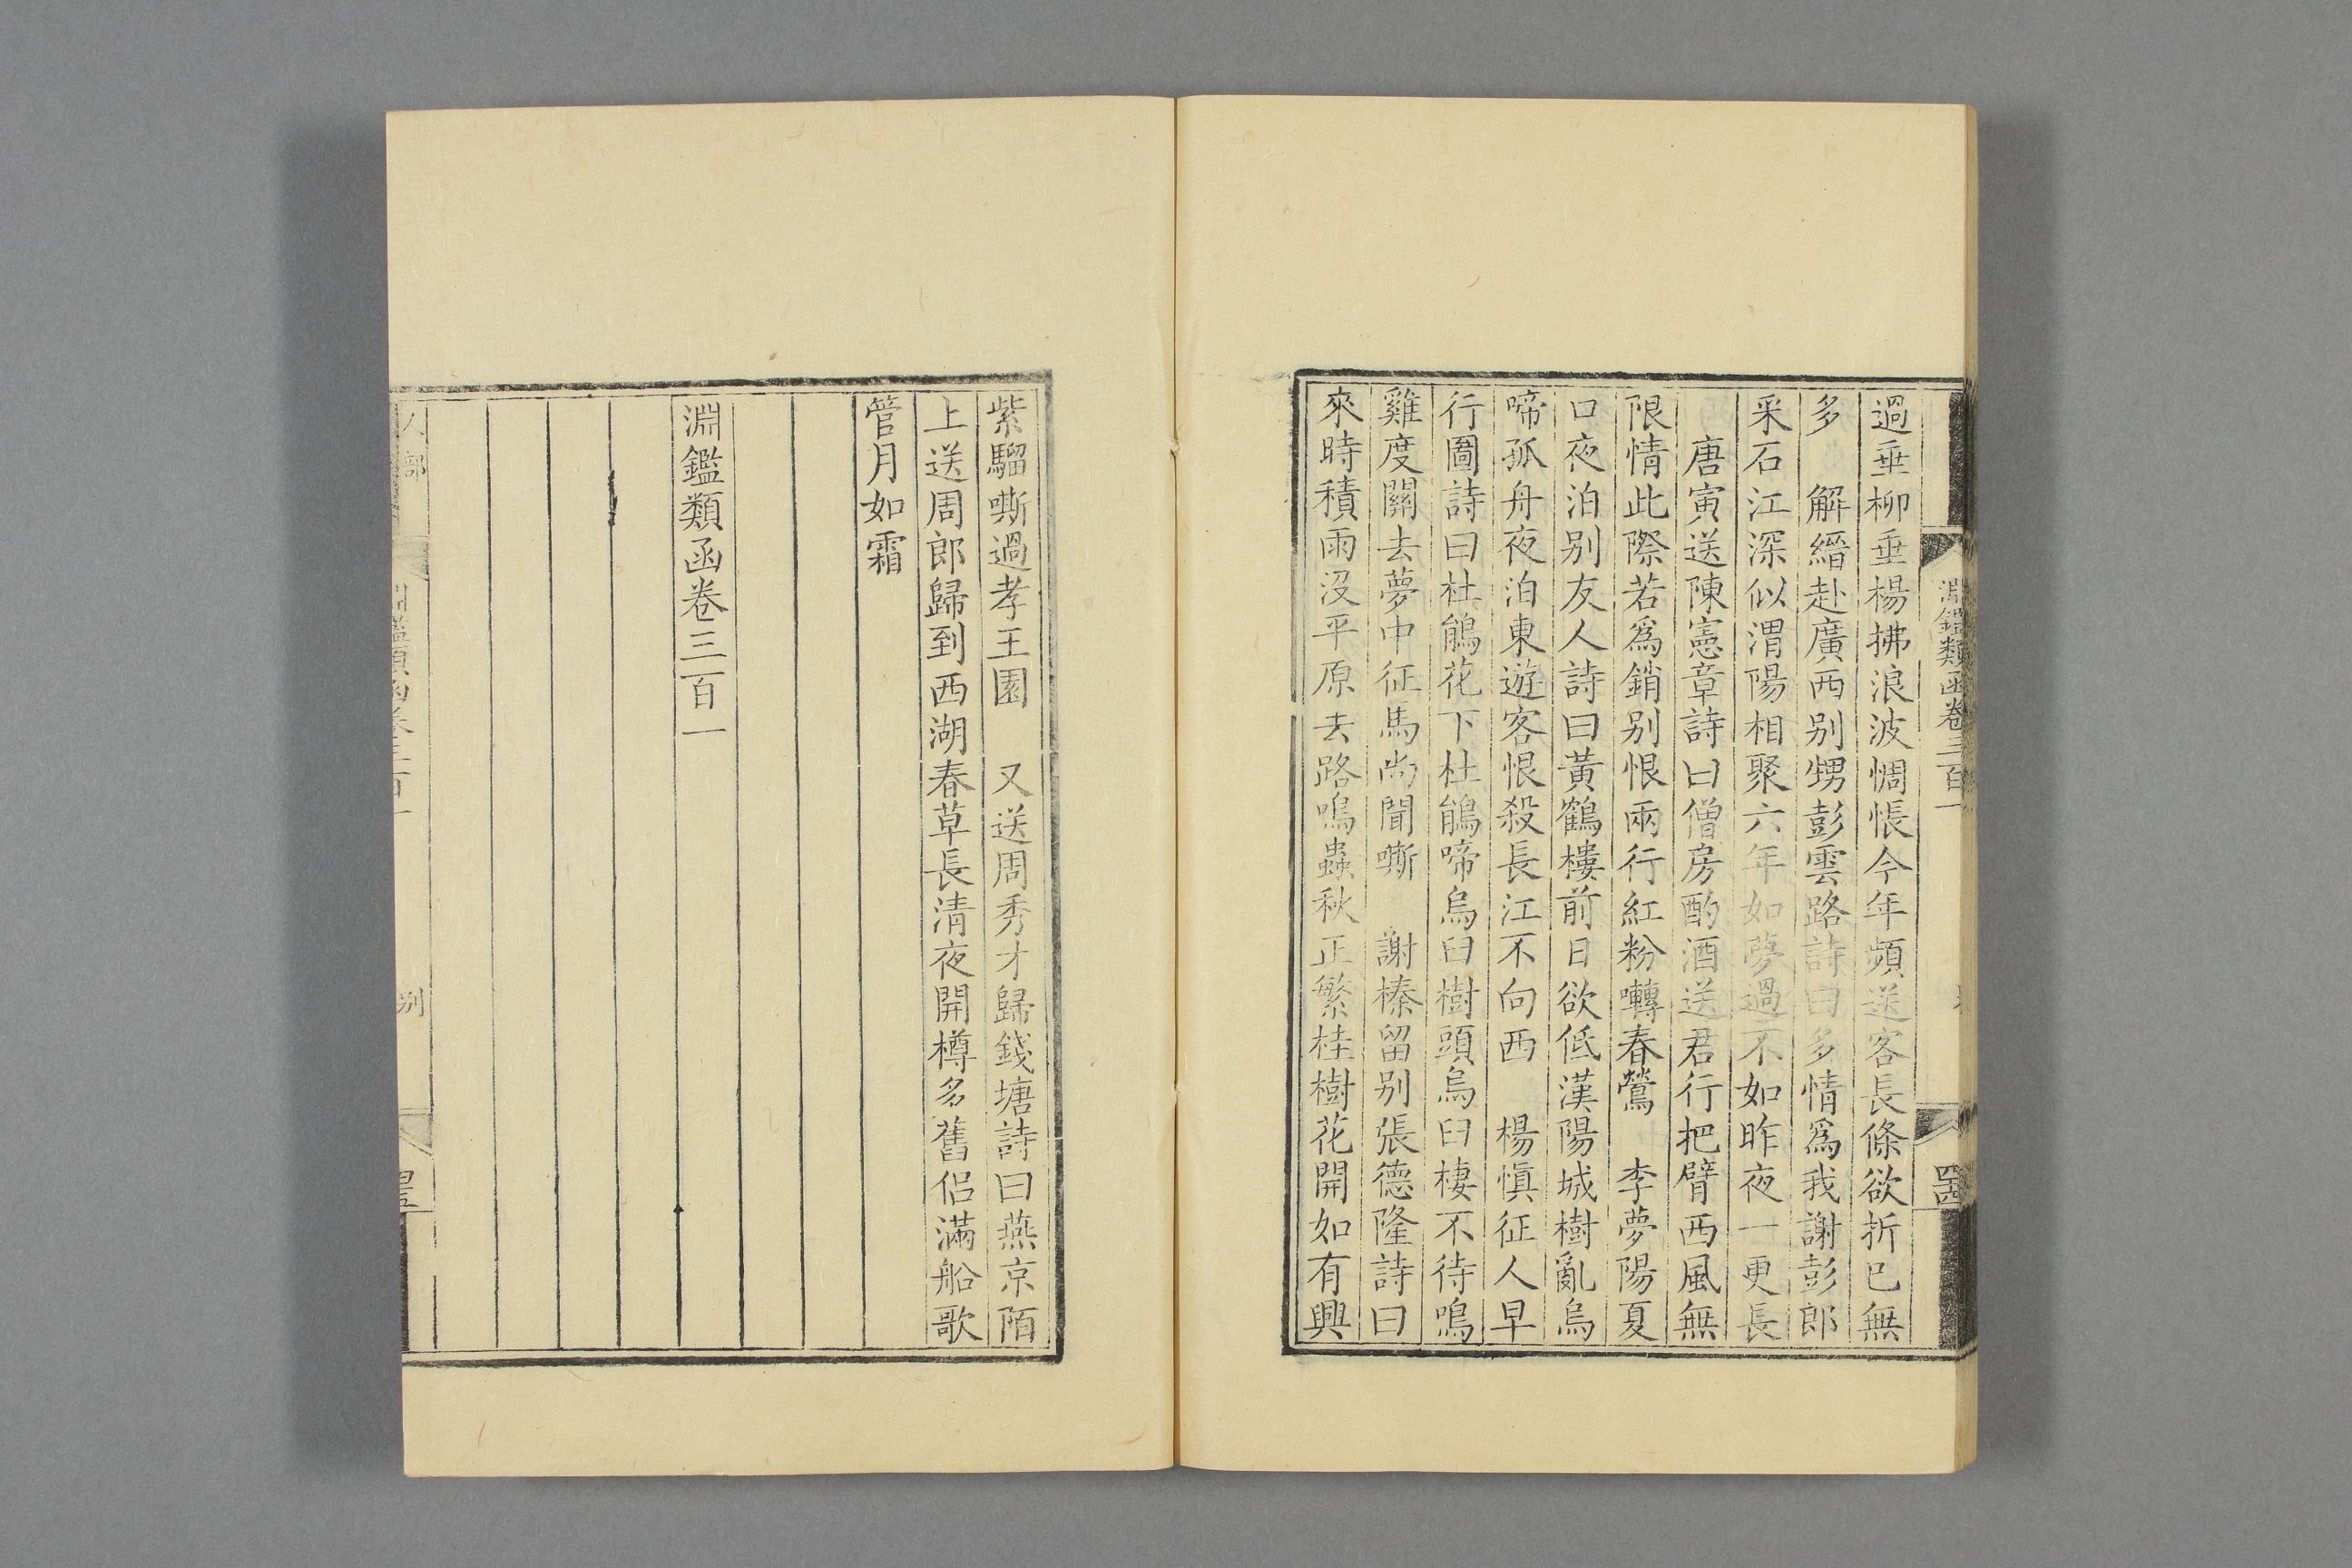 淵鑑類函卷三百一
過垂柳垂楊拂浪波惆悵今年頻送客長條欲折已無
多　解縉赴廣西别甥彭雲路詩曰多情爲我謝彭郎
采石江深似渭陽相聚六年如夢過不如昨夜一更長
唐寅送陳憲章詩曰僧房酌酒送君行把臂西風無
限情此際若爲銷别恨兩行紅粉囀春鶯　李夢陽夏
口夜泊别友人詩曰黃鶴樓前日欲低漢陽城樹亂烏
啼孤舟夜泊東遊客恨殺長江不向西　楊愼征人早
行圖詩曰杜鵑花下杜鵑啼烏臼樹頭烏臼棲不待鳴
雞度關去夢中征馬尚聞嘶　謝榛留别張德隆詩曰
來時積雨沒平原去路鳴蟲秋正繁桂樹花開如有興
紫騮嘶過孝王園　又送周秀才歸錢塘詩曰燕京陌
上送周郎歸到西湖春草長清夜開樽多舊侣滿船歌
管月如霜
淵鑑類函卷三百一
人部
别